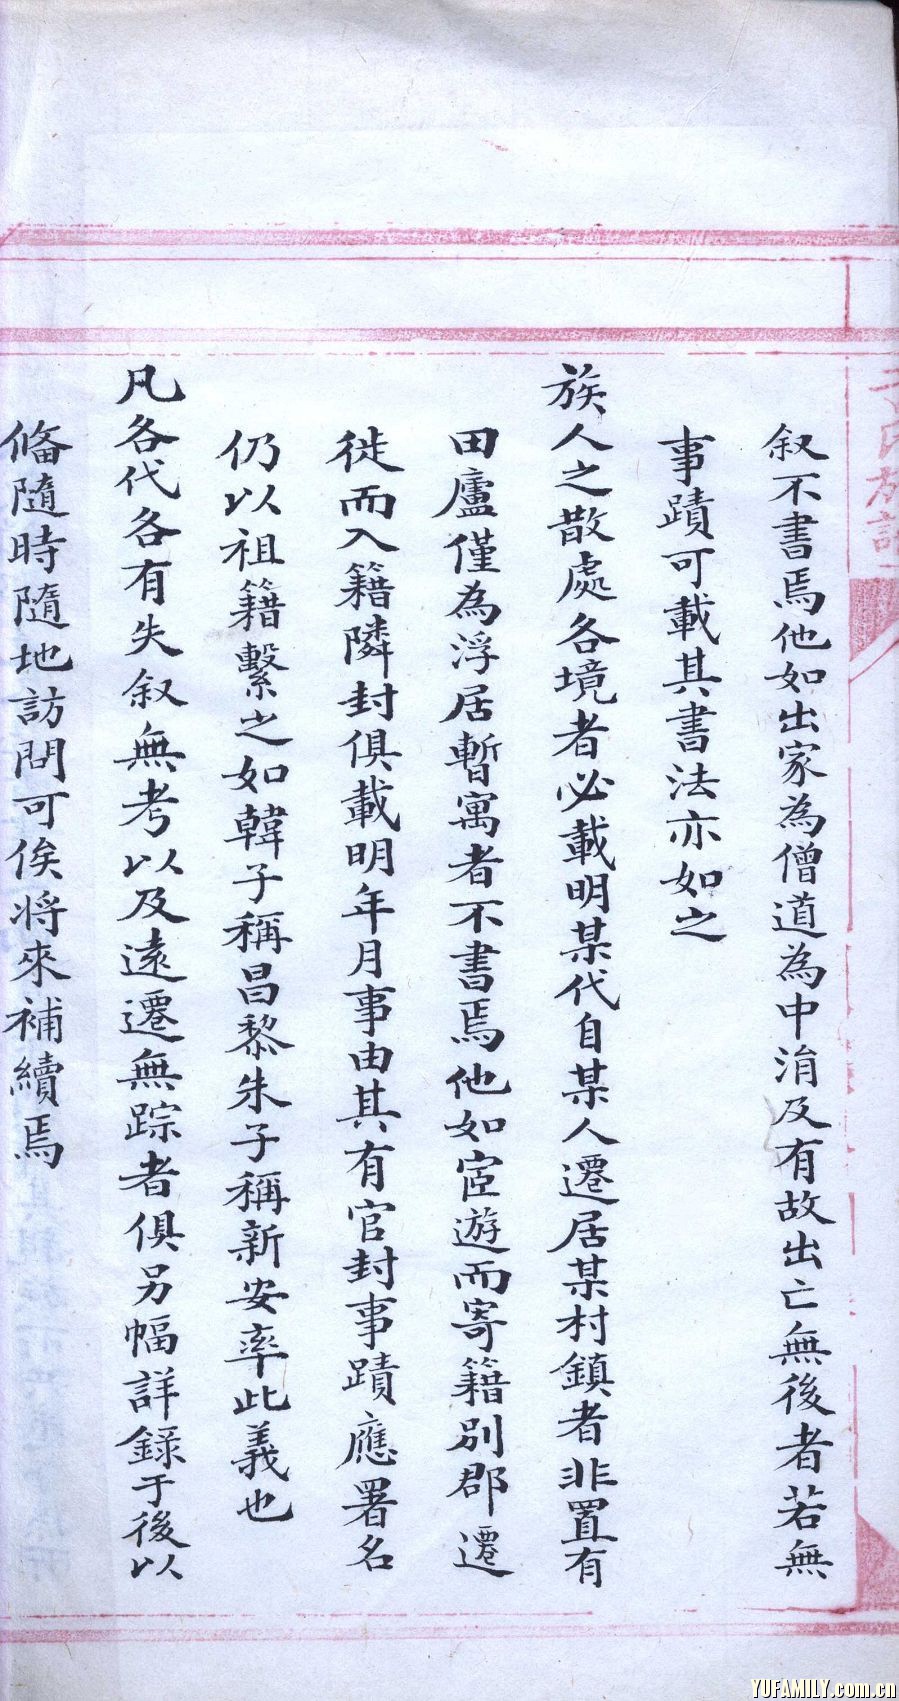 叙不書焉他如出家為僧道為中涓及有故出亡無後者若無
事蹟可載其書法亦如之
族人之散處各境者必載明某代自某人遷居某村鎮者非置有
田廬僅為浮居暫寓者不書焉他如宦遊而寄籍別郡遷
徙而入籍隣封俱載明年月事由其有官封事蹟應署名
仍以祖籍繫之如韓子稱昌黎朱子稱新安率此義也
凡各代各有失叙無考以及遠遷無踪者俱另幅詳錄于後以
俻隨時隨地訪問可俟將來補續焉
YUFAMILY.com.cn